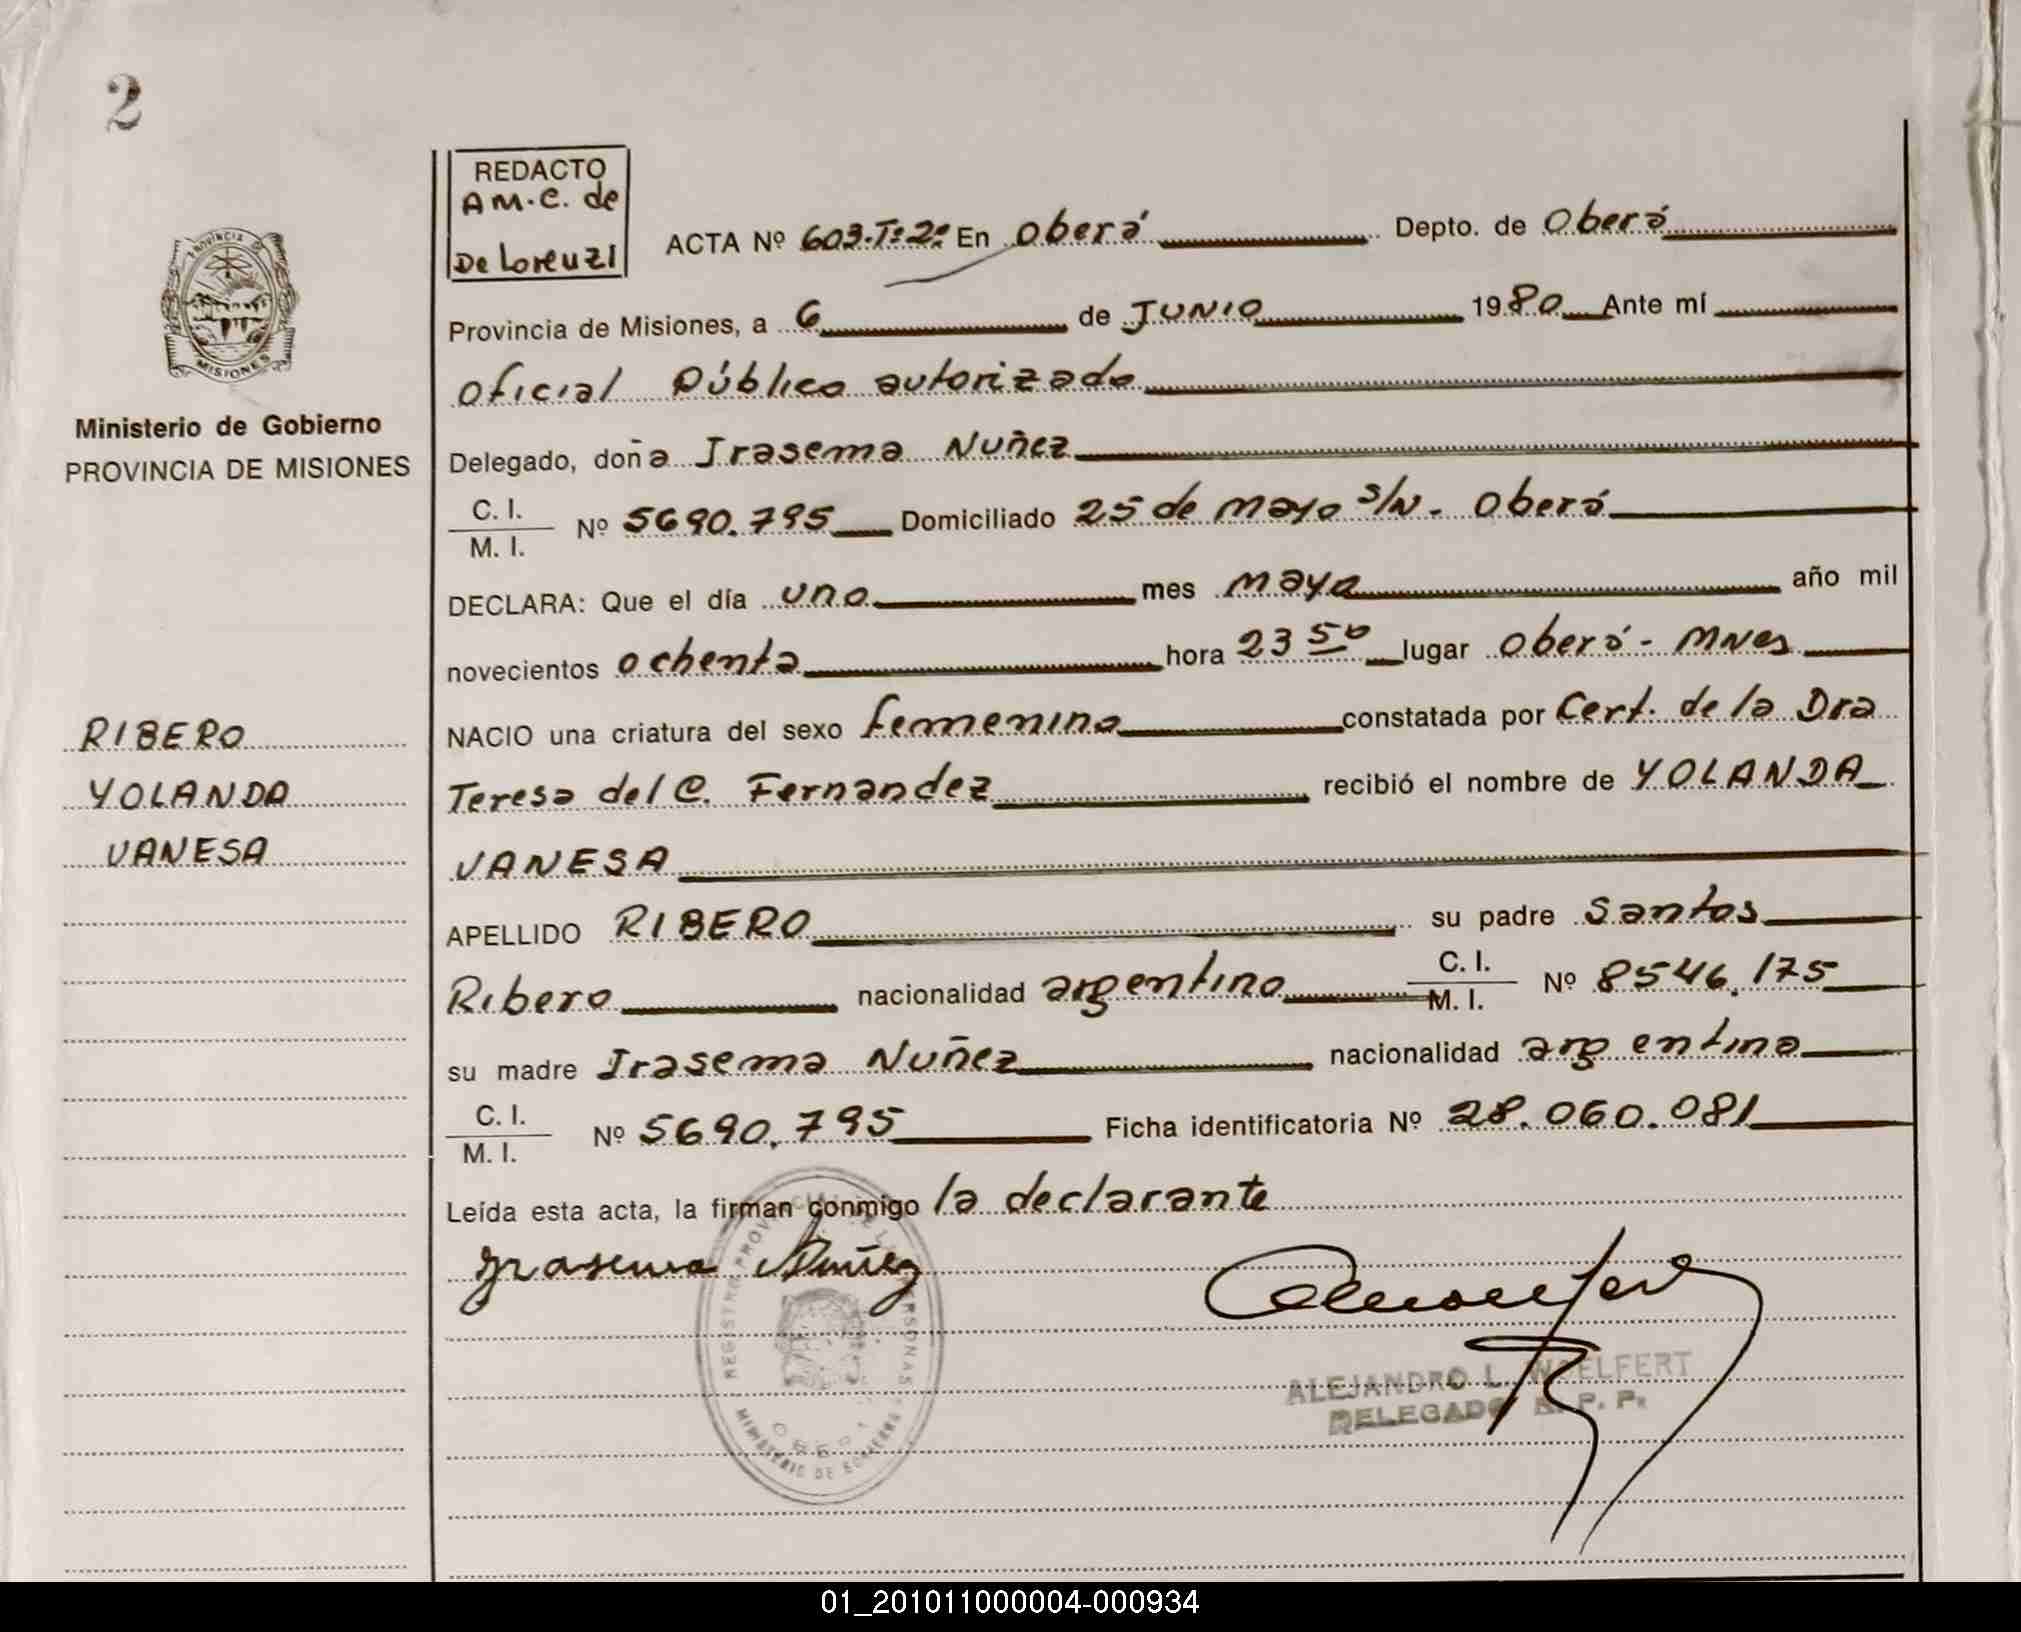 2
REDACTO
A M. C. de
De Lorenzi
ACTA Nº 603.Tº2º En Oberá Depto. de Oberá
Provincia de Misiones, a 6 de JUNIO 1980 Ante mí
Oficial Público autorizado
Delegado, doña Irasema Nuñez
C. I.
M. I. Nº 5690.795 Domiciliado 25 de mayo s/N. Oberá
DECLARA: Que el día uno mes mayo año mil
novecientos ochenta hora 23 50 lugar Oberá - Mnes
NACIO una criatura del sexo femenino constatada por Cert. de la Dra
Teresa del C. Fernandez recibió el nombre de YOLANDA
VANESA
APELLIDO RIBERO su padre Santos
Ribero nacionalidad argentino C. I. M. I. Nº 8546.175
su madre Irasema Nuñez nacionalidad argentina
C. I.
M. I. Nº 5690.795 Ficha identificatoria Nº 28.060.081
Leída esta acta, la firman conmigo la declarante
Irasema Nuñez
ALEJANDRO L. WOELFERT
DELEGADO R. P. P.
PROVINCIA DE
MISIONES
Ministerio de Gobierno
PROVINCIA DE MISIONES
RIBERO
YOLANDA
VANESA
01_201011000004-000934